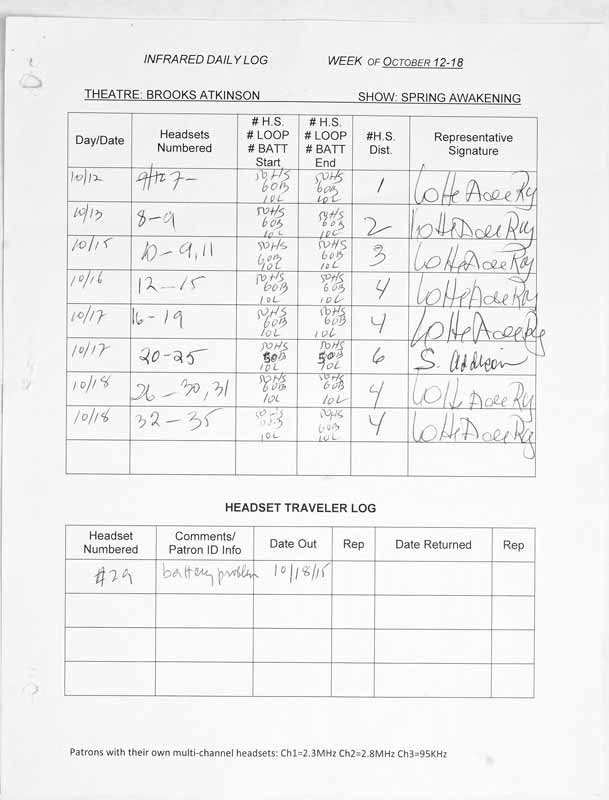 INFRARED DAILY LOG WEEK OF OCTOBER 12-18
THEATRE: BROOKS ATKINSON SHOW: SPRING AWAKENING
Day/Date Headsets Numbered # H.S. # LOOP # BATT Start # H.S. # LOOP # BATT End #H.S. Dist. Representative Signature
10/12 7- 50HS 60B 10L 50HS 60B 10L 1
10/13 8-9 50HS 60B 10L 50HS 60B 10L 2
10/15 10-9,11 50HS 60B 10L 50HS 60B 10L 3
10/16 12-15 50HS 60B 10L 50HS 60B 10L 4
10/17 16-19 50HS 60B 10L 50HS 60B 10L 4
10/17 20-25 50HS 10L 50HS 10L 6 S. Addison
10/18 26-30,31 50HS 60B 10L 50HS 60B 10L 4
10/18 32-35 10L 50HS 60B 10L 4
HEADSET TRAVELER LOG
Headset Numbered Comments/ Patron ID Info Date Out Rep Date Returned Rep
#29 battery problem 10/18/15
Patrons with their own multi-channel headsets: Ch1=2.3MHz Ch2=2.8MHz Ch3=95KHz